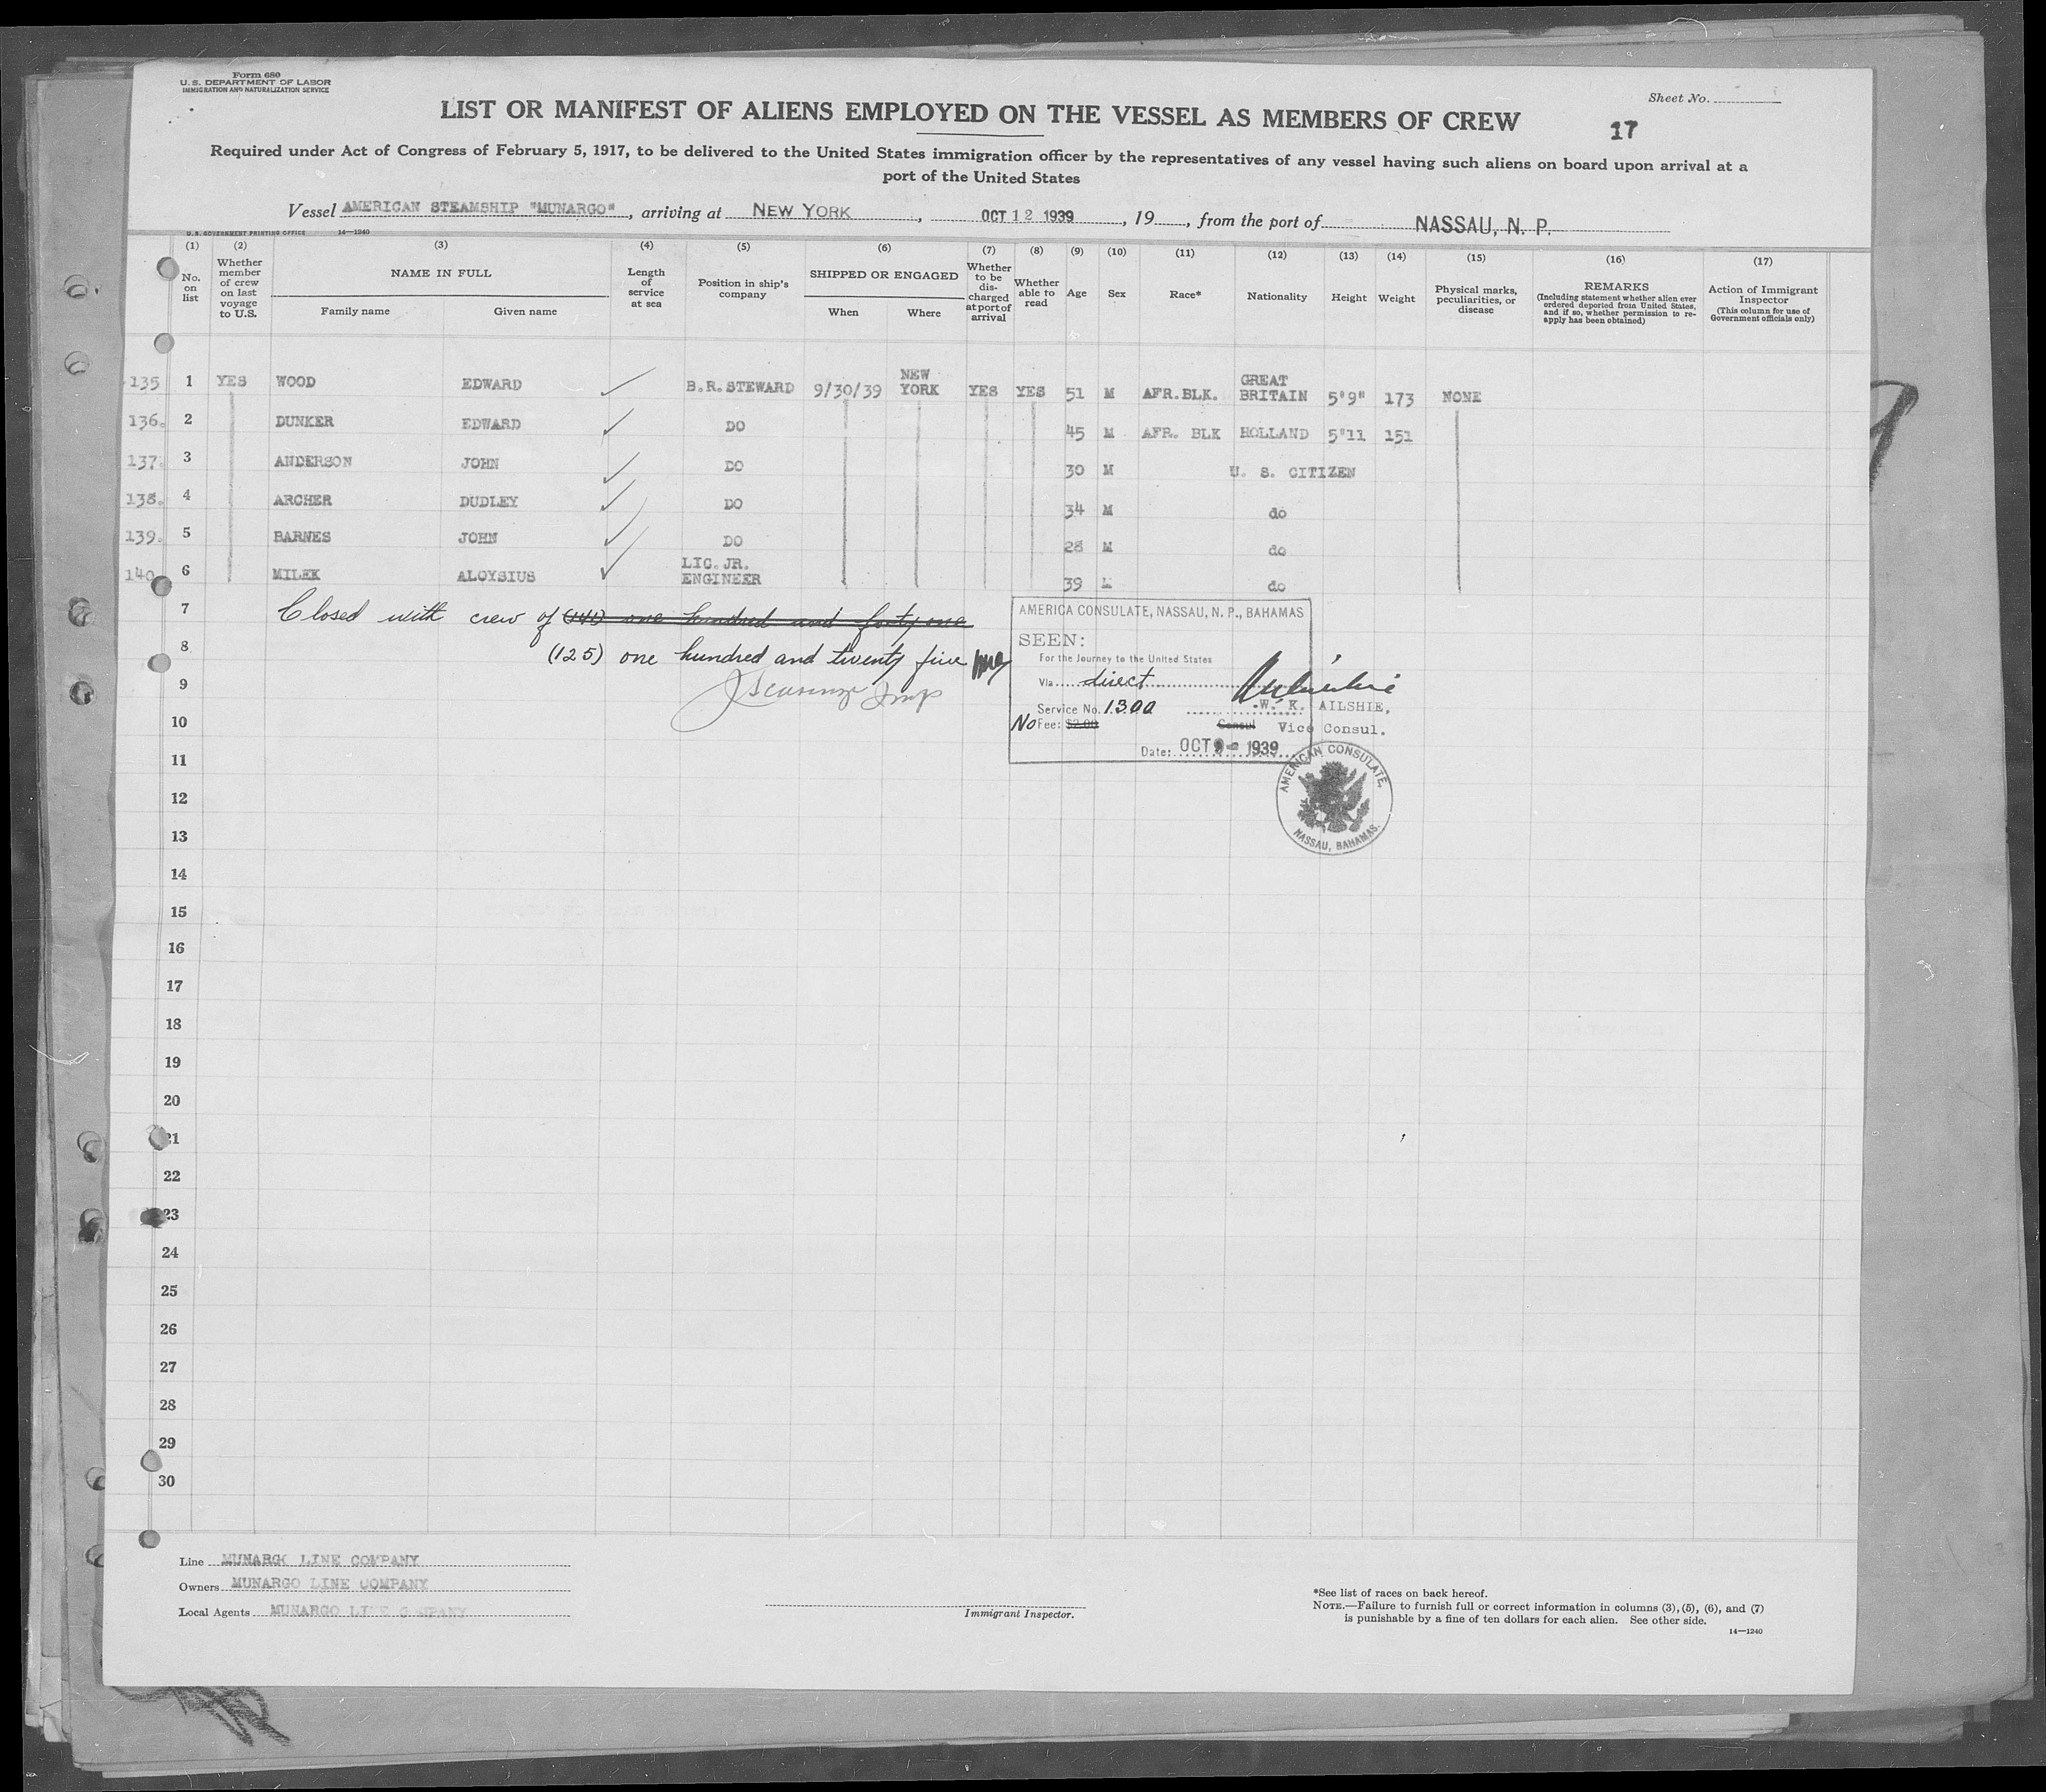 Form 680
U. S. DEPARTMENT OF LABOR
IMMIGRATION AND NATURALIZATION SERVICE
Sheet No.
LIST OR MANIFEST OF ALIENS EMPLOYED ON THE VESSEL AS MEMBERS OF CREW
17
Required under Act of Congress of February 5, 1917, to be delivered to the United States immigration officer by the representatives of any vessel having such aliens on board upon arrival at a
port of the United States
Vessel AMERICAN STEAMSHIP "MUNARGO", arriving at NEW YORK, OCT 12 1939, 19, from the port of NASSAU, N. P.
U. S. GOVERNMENT PRINTING OFFICE 14—1240
(1) No. on list
(2) Whether member of crew on last voyage to U.S.
(3) NAME IN FULL
Family name
Given name
(4) Length of service at sea
(5) Position in ship's company
(6) SHIPPED OR ENGAGED
When
Where
(7) Whether to be discharged at port of arrival
(8) Whether able to read
(9) Age
(10) Sex
(11) Race*
(12) Nationality
(13) Height
(14) Weight
(15) Physical marks, peculiarities, or disease
(16) REMARKS (Including statement whether alien ever ordered deported from United States, and if so, whether permission to re-apply has been obtained)
(17) Action of Immigrant Inspector (This column for use of Government officials only)
135 1 YES WOOD EDWARD B.R.STEWARD 9/30/39 NEW YORK YES YES 51 M AFR.BLK. GREAT BRITAIN 5'9" 173 NONE
136. 2 DUNKER EDWARD DO 45 M AFR. BLK HOLLAND 5'11 151
137. 3 ANDERSON JOHN DO 30 M U. S. CITIZEN
138. 4 ARCHER DUDLEY DO 34 M do
139. 5 BARNES JOHN DO 28 M do
140 6 MILEK ALOYSIUS LIC. JR. ENGINEER 39 M do
7 Closed with crew of (141) one hundred and forty one
8 (125) one hundred and twenty five
9
10
11
12
13
14
15
16
17
18
19
20
21
22
23
24
25
26
27
28
29
30
AMERICA CONSULATE, NASSAU, N. P., BAHAMAS
SEEN:
For the Journey to the United States
Via direct
Service No. 1300
W. K. AILSHIE,
No Fee: $2.00 Consul Vice Consul.
Date: OCT 9 - 1939
AMERICAN CONSULATE,
NASSAU, BAHAMAS.
Line MUNARGO LINE COMPANY
Owners MUNARGO LINE COMPANY
Local Agents MUNARGO LINE COMPANY
Immigrant Inspector.
*See list of races on back hereof.
NOTE.—Failure to furnish full or correct information in columns (3), (5), (6), and (7)
is punishable by a fine of ten dollars for each alien. See other side.
14—1240